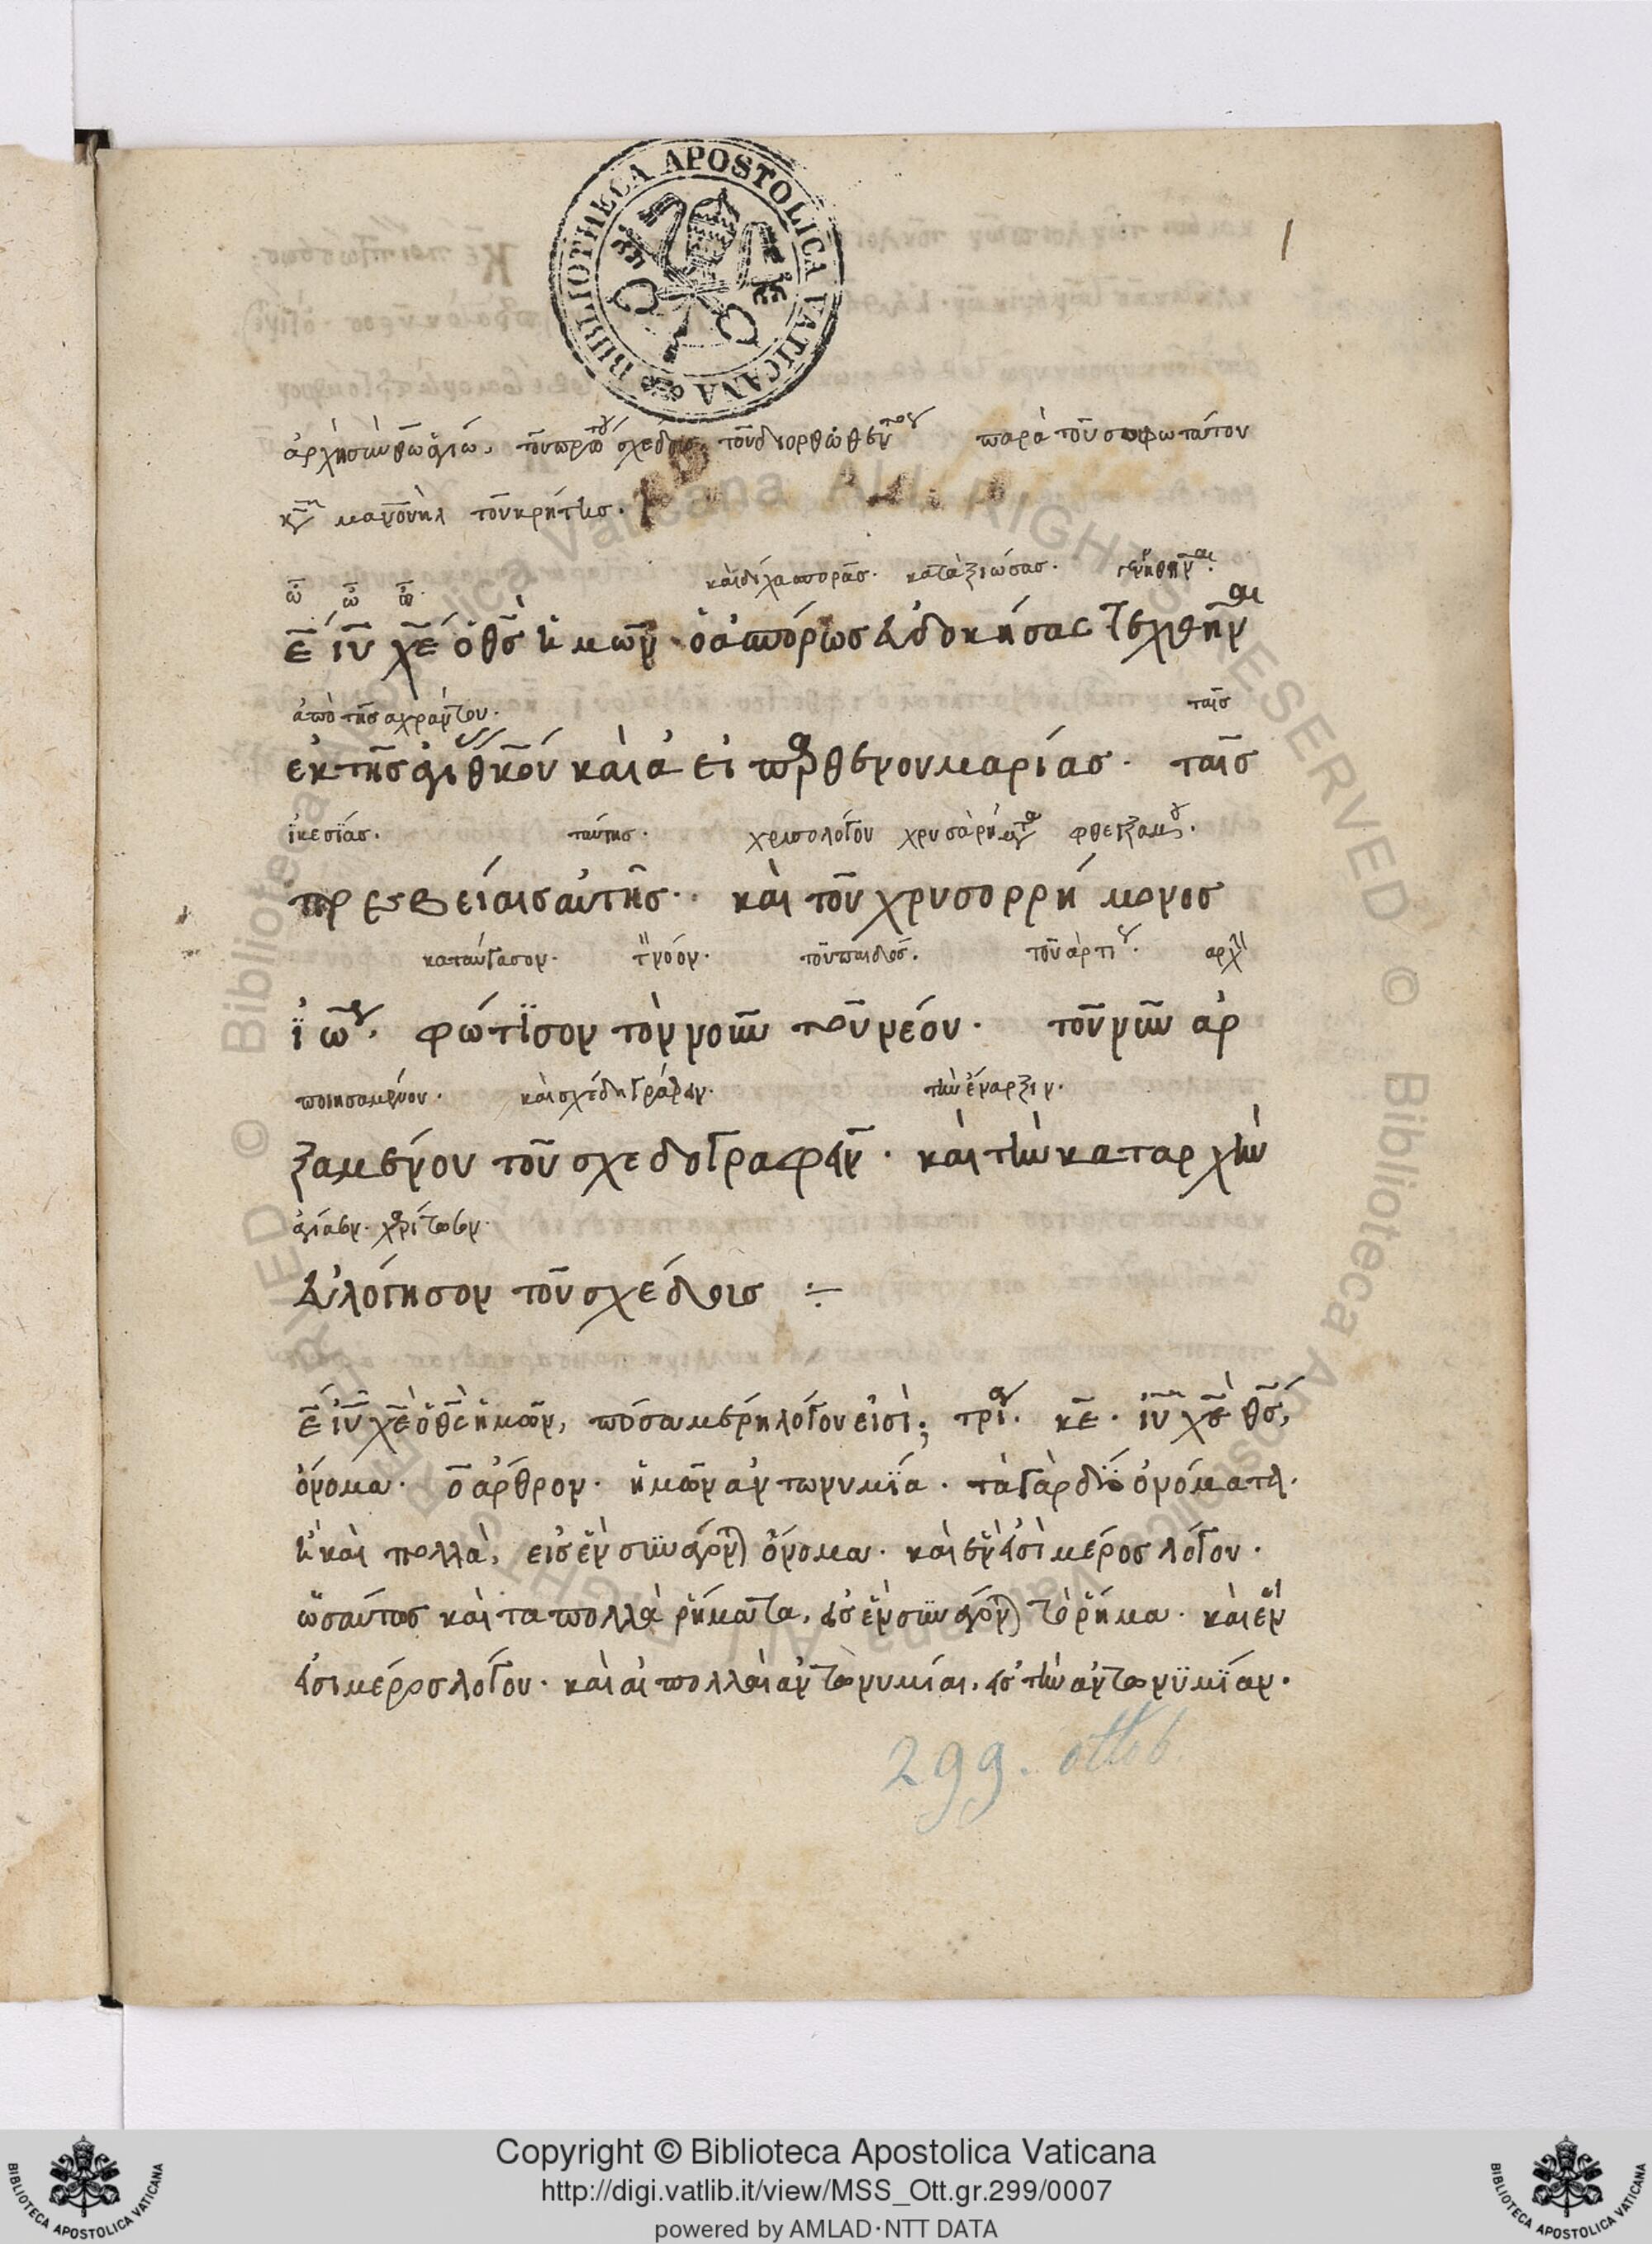 BIBLIOTHECA APOSTOLICA VATICANA
1
ἀρχὴ σὺν θ̅ῶ ἁγίῳ, τοῦ πρώτου σχέδους τοῦ διορθωθέντος παρὰ τοῦ σοφωτάτου
μανουὴλ τοῦ κρήτης.
ὦ ὦ ὦ καὶ δίχα σπορᾶς. καταξιώσας. γεννηθῆναι.
κ̅ε̅ ι̅υ̅ χ̅ε̅ ὁ θ̅ς̅ ἡμῶν· ὁ ἀσπόρως εὐδοκήσας τεχθῆναι
ἀπὸ τῆς ἀχράντου. ταῖς
ἐκ τῆς ἁγίας θ̅κ̅ου καὶ ἀεὶ παρθένου μαρίας· ταῖς
ἱκεσίας. ταύτης. χρυσολόγου φθεγξαμένου.
πρεσβείαις αὐτῆς· καὶ τοῦ χρυσορρήμονος
καταύγασον. τὸν νόον. τοῦ παιδός. τοῦ ἄρτι. ἀρχὴν
ἰω. φώτισον τὸν νοῦν τοῦ νέον· τοῦ νῦν ἀρ
ποιησαμένου. καὶ σχέδη γράφειν. τὴν ἔναρξιν.
ξαμένου τοῦ σχεδογραφεῖν· καὶ τὴν καταρχὴν
ἁγίασον. χαρίτωσον.
εὐλόγησον τοῦ σχέδους ÷
κ̅ε̅ ι̅υ̅ χ̅ε̅ ὁ θ̅ς̅ ἡμῶν, πόσα μέρη λόγου εἰσὶ; τρία. κ̅ε̅. ι̅υ̅ χ̅ε̅ θ̅ς̅,
ὄνομα. ὁ ἄρθρον. ἡμῶν ἀντωνυμία. τὰ γὰρ δύο ὀνόματα.
ἢ καὶ πολλὰ, εἰς ἓν συνάγονται ὄνομα. καὶ ἕν εἰσι μέρος λόγου.
ὡσαύτως καὶ τα πολλὰ ῥήματα, εἰς ἓν συνάγονται τὸ ῥῆμα. καὶ ἕν
εἰσι μέρος λόγου. καὶ αἱ πολλαὶ ἀντωνυμίαι, εἰς τὴν ἀντωνυμίαν.
299. ottob.
Copyright © Biblioteca Apostolica Vaticana
http://digi.vatlib.it/view/MSS_Ott.gr.299/0007
powered by AMLAD·NTT DATA